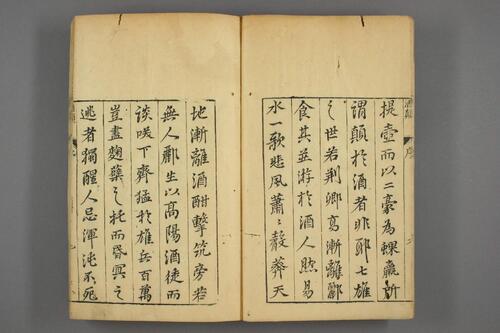 提壺而以二豪為蜾蠃所
謂顛於酒者非耶七雄
之世若荊卿高漸離酈
食其並游於酒人然易
水一歌悲風蕭〻殺莽天
地漸離酒酣擊筑旁若
無人酈生以高陽酒徒而
談笑下齊猛於雄兵百萬
豈盡麴糵之托而昏冥之
逃者獨醒人忌渾沌不死